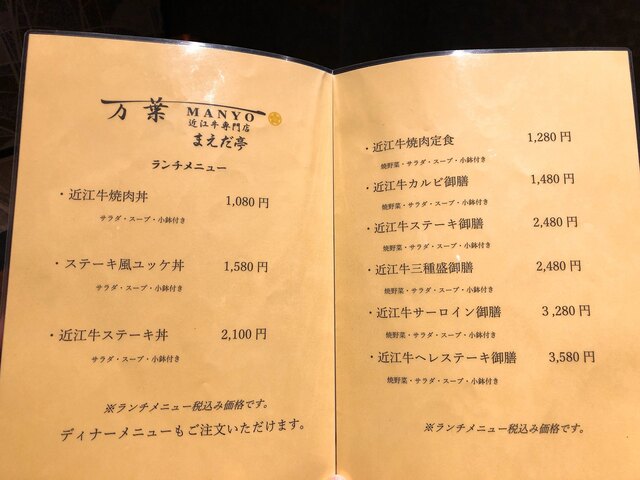 万葉 MANYO
近江牛専門店
まえだ亭
ランチメニュー
・近江牛焼肉丼 1,080円
サラダ・スープ・小鉢付き
・ステーキ風ユッケ丼 1,580円
サラダ・スープ・小鉢付き
・近江牛ステーキ丼 2,100円
サラダ・スープ・小鉢付き
※ランチメニュー税込み価格です。
ディナーメニューもご注文いただけます。
・近江牛焼肉定食 1,280円
焼野菜・サラダ・スープ・小鉢付き
・近江牛カルビ御膳 1,480円
焼野菜・サラダ・スープ・小鉢付き
・近江牛ステーキ御膳 2,480円
焼野菜・サラダ・スープ・小鉢付き
・近江牛三種盛御膳 2,480円
焼野菜・サラダ・スープ・小鉢付き
・近江牛サーロイン御膳 3,280円
焼野菜・サラダ・スープ・小鉢付き
・近江牛ヘレステーキ御膳 3,580円
焼野菜・サラダ・スープ・小鉢付き
※ランチメニュー税込み価格です。